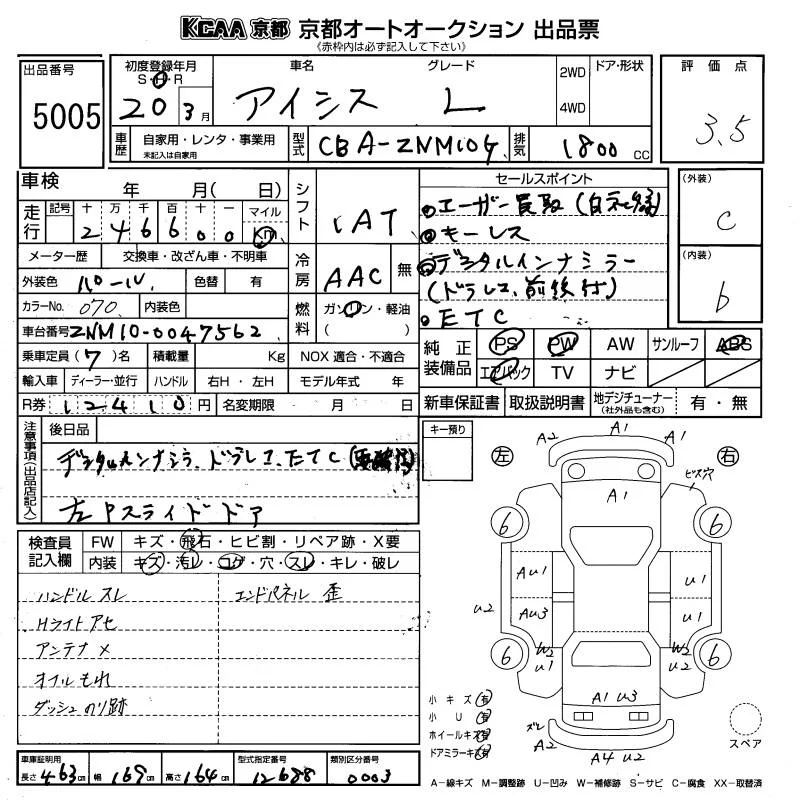 KCAA 京都 京都オートオークション 出品票
《赤枠内は必ず記入して下さい》
出品番号
5005
初度登録年月
S・H・R
20 3月
車名
アイシス
グレード
L
2WD
4WD
ドア・形状
評価点
3.5
車歴
自家用・レンタ・事業用
未記入は自家用
型式
CBA-ZNM10G
排気
1800 CC
車検
年 月( 日)
走行
記号 十 万 千 百 十 一 マイル
2 4 6 6 0 0 km
シフト
IAT
メーター歴
交換車・改ざん車・不明車
外装色
パール
色替
有
冷房
AAC
無
カラーNo.
070
内装色
燃料
ガソリン・軽油
( )
車台番号
ZNM10-0047562
乗車定員(7)名
積載量
Kg
NOX 適合・不適合
輸入車
ディーラー・並行
ハンドル
右H・左H
モデル年式
年
R券
12410円
名変期限
月 日
セールスポイント
ユーザー買取(自社
キーレス
デジタルインナミラー
(ドラレコ、前後付)
ETC
(外装)
C
(内装)
b
純正装備品
PS
PW
AW
サンルーフ
ABS
エアバック
TV
ナビ
新車保証書
取扱説明書
地デジチューナー
(社外品も含む)
有・無
注意事項(出品店記入)
後日品
デジタルインナミラ、ドラレコ、ETC
左Pスライドドア
キー預り
検査員記入欄
FW
キズ・飛石・ヒビ割・リペア跡・X要
内装
キズ・汚レ・コゲ・穴・スレ・キレ・破レ
ハンドル スレ
エンドパネル 歪
Hライト アセ
アンテナ メ
オイルもれ
ダッシュ のり跡
左
右
A2
A1
A2
ビス穴
A1
6
6
Au1
u1
u2
Au3
u1
6
W2
u1
W2
u2
6
A1 u3
小キズ 有
小U 有
ホイールキズ 有
ドアミラーキズ 有
ズレ
A2
A4 u2
スペア
車庫証明用
長さ 463cm
幅 169cm
高さ 164cm
型式指定番号
12688
類別区分番号
0003
A-線キズ M-調整跡 U-凹み W-補修跡 S-サビ C-腐食 XX-取替済